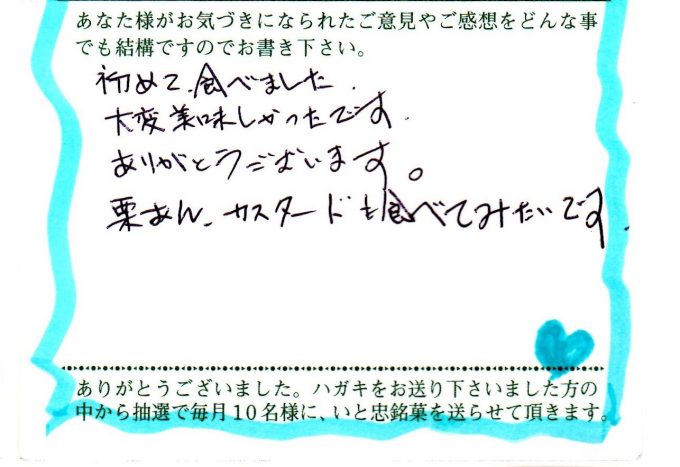 あなた様がお気づきになられたご意見やご感想をどんな事
でも結構ですのでお書き下さい。
初めて、食べました.
大変美味しかったです.
ありがとうございます。
栗あん、カスタードも食べてみたいです.
ありがとうございました。ハガキをお送り下さいました方の
中から抽選で毎月10名様に、いと忠銘菓を送らせて頂きます。